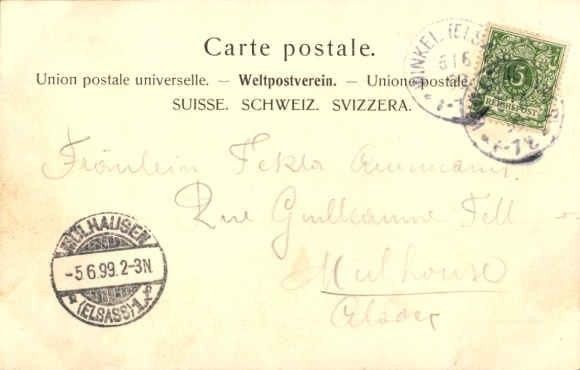 Carte postale.
Union postale universelle. — Weltpostverein. — Unione postale
SUISSE. SCHWEIZ. SVIZZERA.
WINKEL (ELSASS)
5
REICHSPOST
Fräulein Tekla Ammann.
Rue Guillaume Tell
Mulhouse
Alsace
MÜLHAUSEN
-5.6.99.2-3N.
* (ELSASS) 1 *